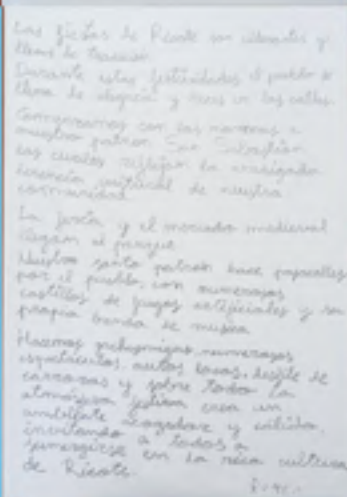 Las fiestas de Ricote son vibrantes y
llenas de tradición
Durante estas festividades el pueblo se
llena de alegría y en las calles.
Comenzamos con las novenas a
nuestro patrón San Sebastián
las cuales reflejan la arraigada
herencia cultural de nuestra
comunidad
La feria y el mercado medieval
llegan al parque
Nuestro santo patrón hace pasacalles
por el pueblo, con numerosos
castillos de fuegos artificiales y su
propia banda de musica
Hacemos numerosos
espectáculos, autos locos, desfile de
carrozas y sobre todo la
atmósfera festiva crea un
ambiente acogedor y cálido,
invitando a todos a
sumergirse en la rica cultura
de Ricote.